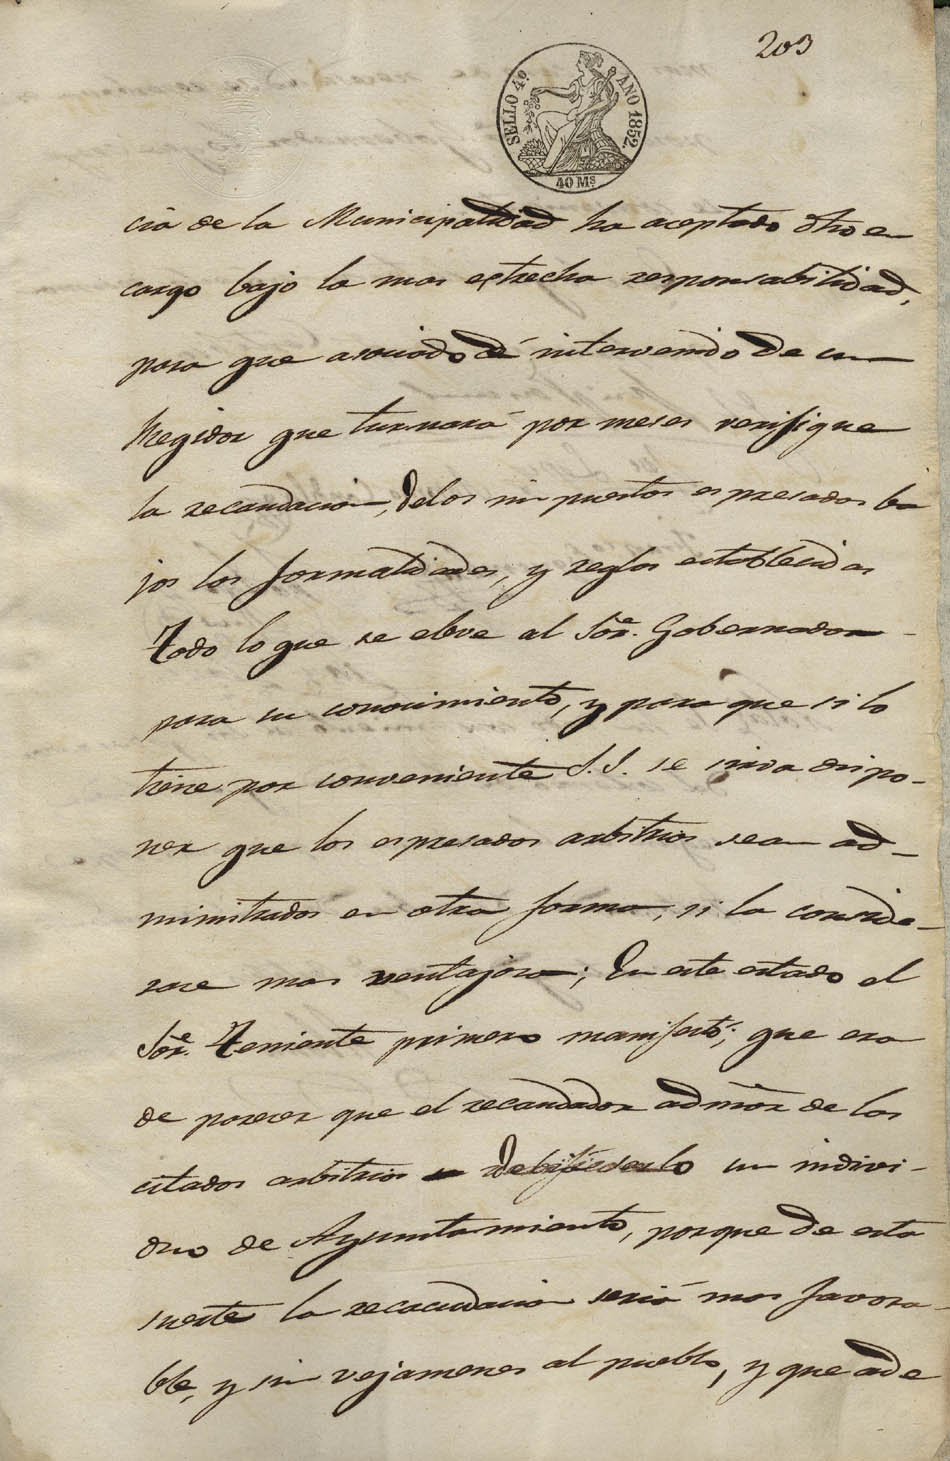 203
SELLO 4º AÑO 1852.
40 Ms
cia de la Municipalidad ha aceptado dho en
cargo bajo la mas estrecha responsabilidad,
para que asociado é intervenido de un
Regidor que turnará por meses verifique
la recaudacion, de los impuestos espresados ba
jos las formalidades, y reglas establecidas
Todo lo que se eleve al Sor. Gobernador
para su conocimiento, y para que si lo
tiene por conveniente S.S. se sirva dispo-
ner que los espresados arbitrios sean ad-
mimitrados en otra forma, si la conside-
rare mas ventajosa; En este estado el
Sor. Teniente primero manifestó; que era
de parecer que el recaudador admor de los
citados arbitrios serlo un indivi-
duo de Ayuntamiento, porque de esta
suerte la recaudacion seria mas favora-
ble, y sin vejamenes al pueblo, y que ade